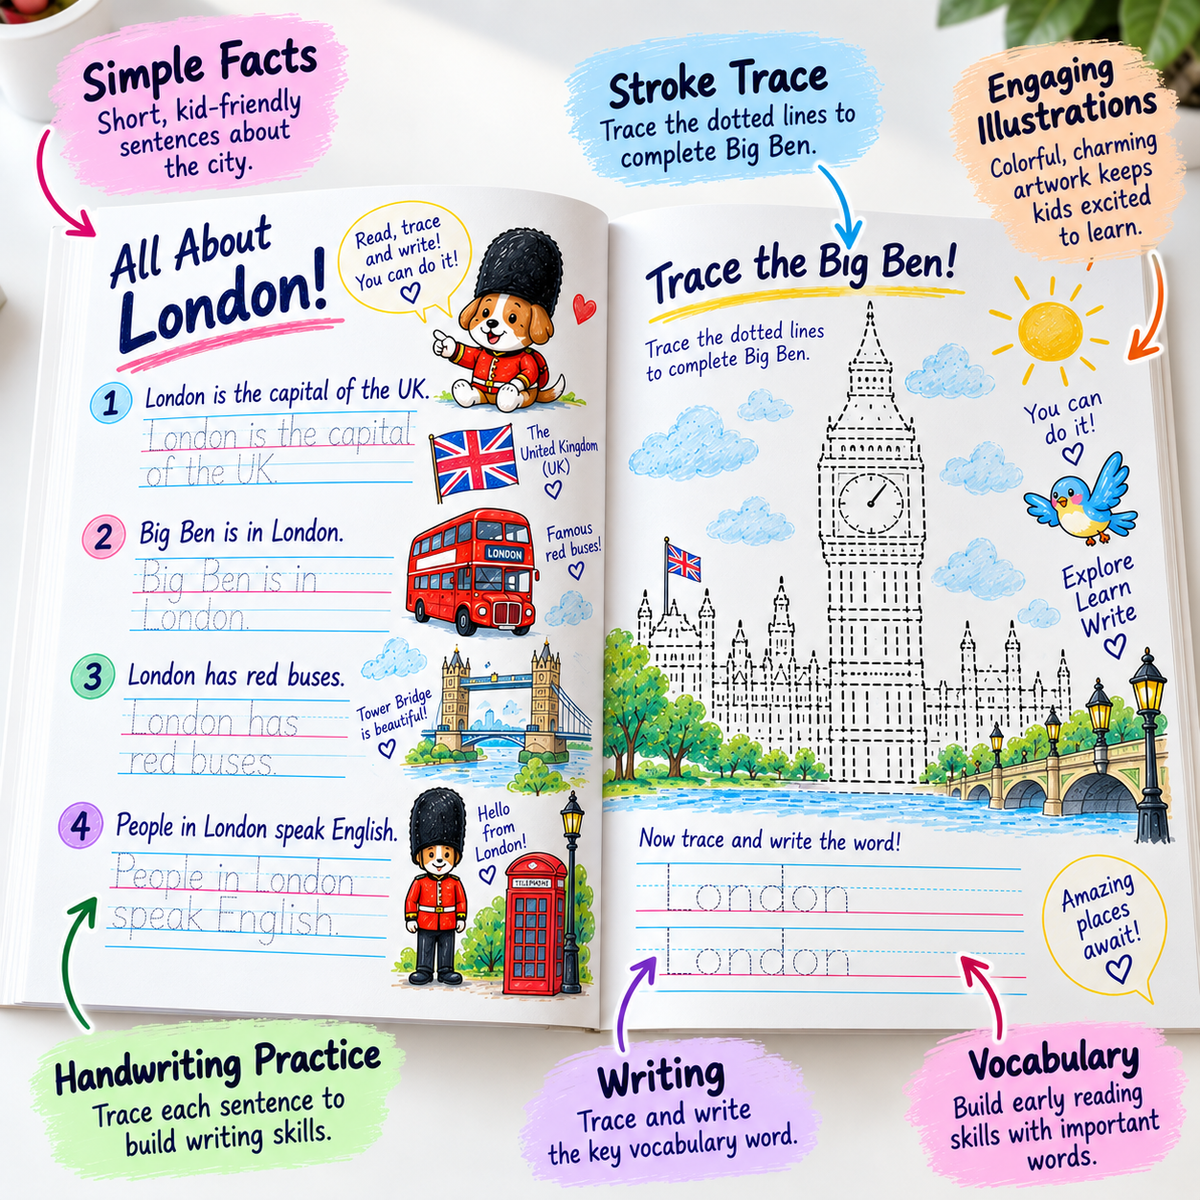 Simple Facts
Short, kid-friendly
sentences about
the city.
Stroke Trace
Trace the dotted lines to
complete Big Ben.
Engaging
Illustrations
Colorful, charming
artwork keeps
kids excited
to learn.
All About
London!
Read, trace
and write!
You can do it!
1
London is the capital of the UK.
London is the capital
of the UK.
The
United Kingdom
(UK)
2
Big Ben is in London.
Big Ben is in
London.
LONDON
Famous
red buses!
3
London has red buses.
London has
red buses.
Tower Bridge
is beautiful!
4
People in London speak English.
People in London
speak English.
Hello
from
London!
TELEPHONE
Trace the Big Ben!
Trace the dotted lines
to complete Big Ben.
You can
do it!
Explore
Learn
Write
Now trace and write the word!
London
London
Amazing
places
await!
Handwriting Practice
Trace each sentence to
build writing skills.
Writing
Trace and write
the key vocabulary word.
Vocabulary
Build early reading
skills with important
words.